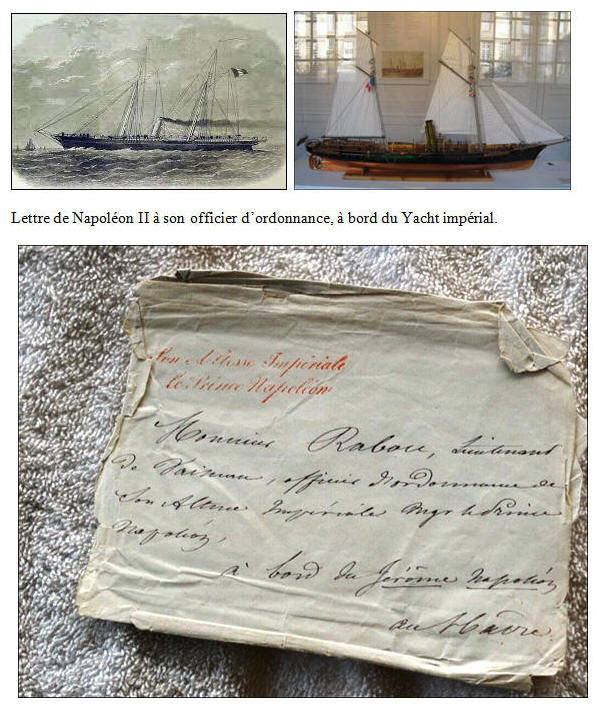 Lettre de Napoléon II à son officier d'ordonnance, à bord du Yacht impérial.
Son Altesse Impériale
le Prince Napoléon
Monsieur Rabou, Lieutenant
de Vaisseau, officier d'ordonnance de
Son Altesse Impériale Mgr le Prince
Napoléon,
à bord du Jérôme Napoléon
au Havre